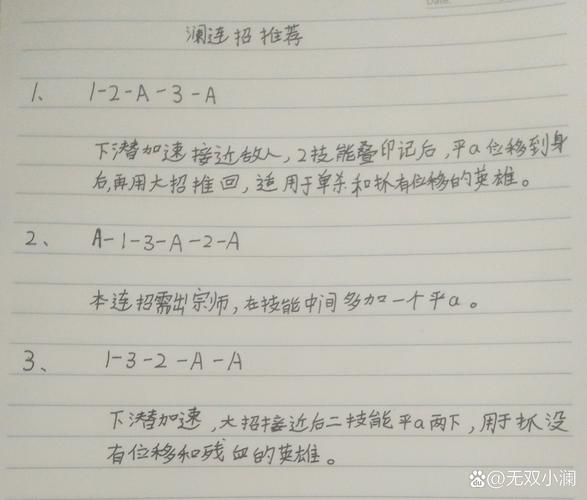 澜连招推荐
1、 1-2-A-3-A
下潜加速接近敌人，2技能叠印记后，平a位移到身
后，再用大招推回，适用于单杀和抓有位移的英雄。
2、 A-1-3-A-2-A
本连招需出宗师，在技能中间多加一个平a。
3、 1-3-2-A-A
下潜加速，大招接近后二技能平a两下，用于抓没
有位移和残血的英雄。
@无双小澜